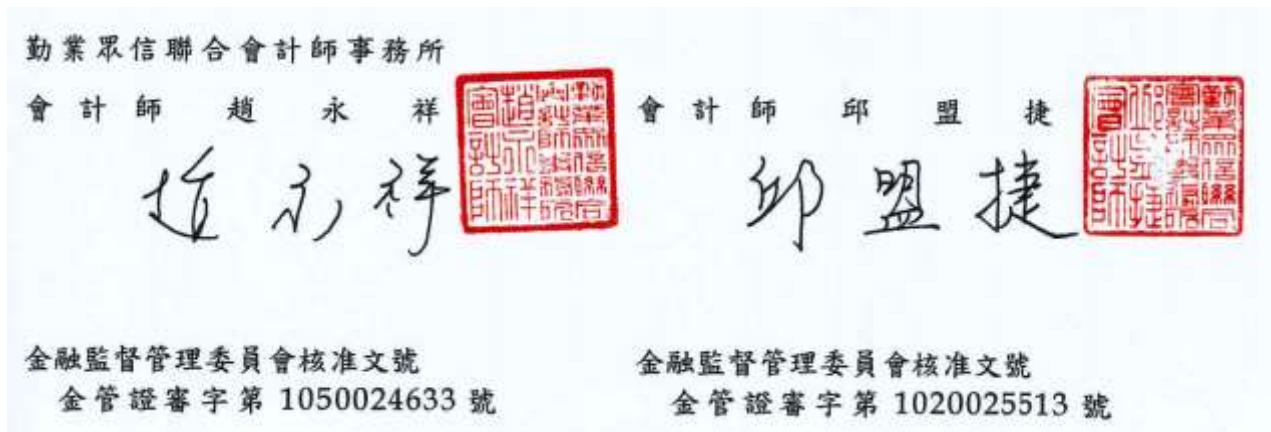 勤業眾信聯合會計師事務所
會計師 趙永祥
會計師 邱盟捷
趙永祥
邱盟捷
金融監督管理委員會核准文號
金管證審字第 1050024633 號
金融監督管理委員會核准文號
金管證審字第 1020025513 號